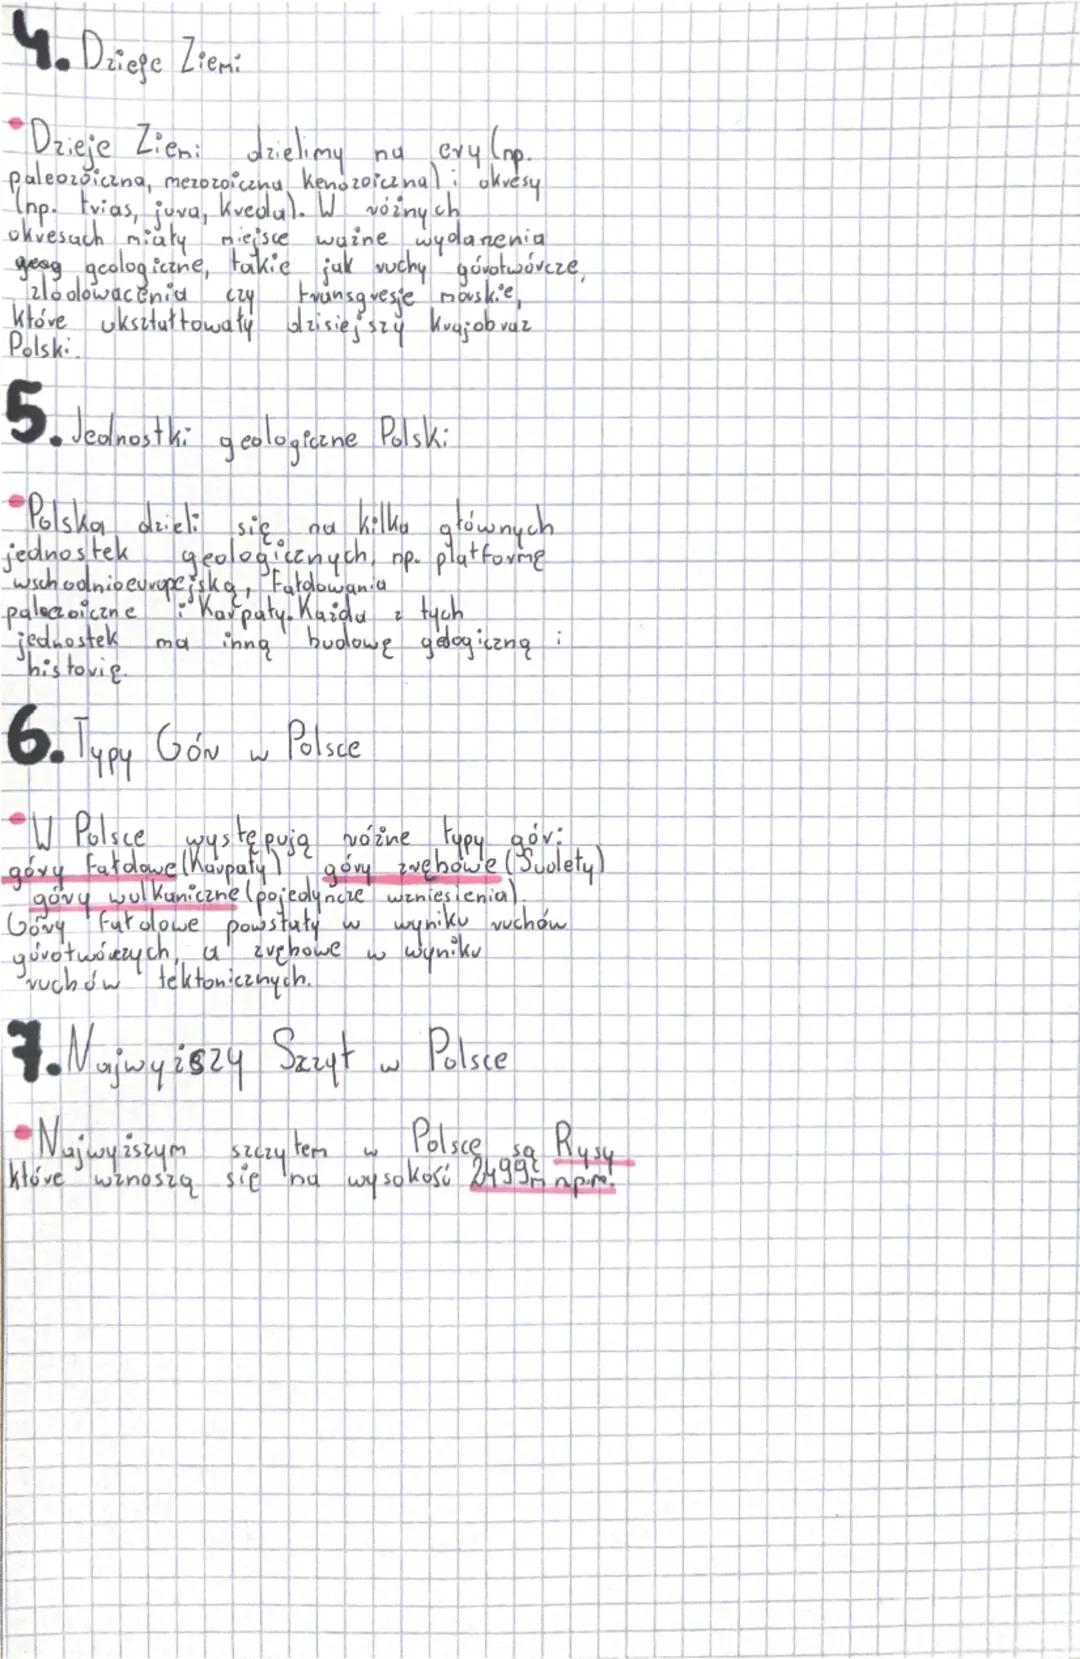 4. Dzieje Ziemi
Dzieje Ziemi dzielimy na ery (np.
paleozoiczna, mezozoiczna, kenozoiczna) i okresy
(np. trias, jura, kreda). W różnych
okresach miały miejsce ważne wydarzenia
geog geologiczne, takie jak ruchy górotwórcze,
zlodowacenia czy transgresje morskie,
które ukształtowały dzisiejszy krajobraz
Polski.
5. Jednostki geologiczne Polski
Polska dzieli się na kilka głównych
jednostek geologicznych, np. platformę
wschodnioeuropejską, fałdowania
paleozoiczne i Karpaty. Każda z tych
jednostek ma inną budowę geologiczną i
historię.
6. Typy Gór w Polsce
W Polsce występują różne typy gór:
góry fałdowe (Karpaty) góry zrębowe (Sudety)
góry wulkaniczne (pojedyncze wzniesienia).
Góry fałdowe powstały w wyniku ruchów
górotwórczych, a zrębowe w wyniku
ruchów tektonicznych.
7. Najwyższy Szczyt w Polsce
Najwyższym szczytem w Polsce są Rysy
które wznoszą się na wysokość 2499m npm.